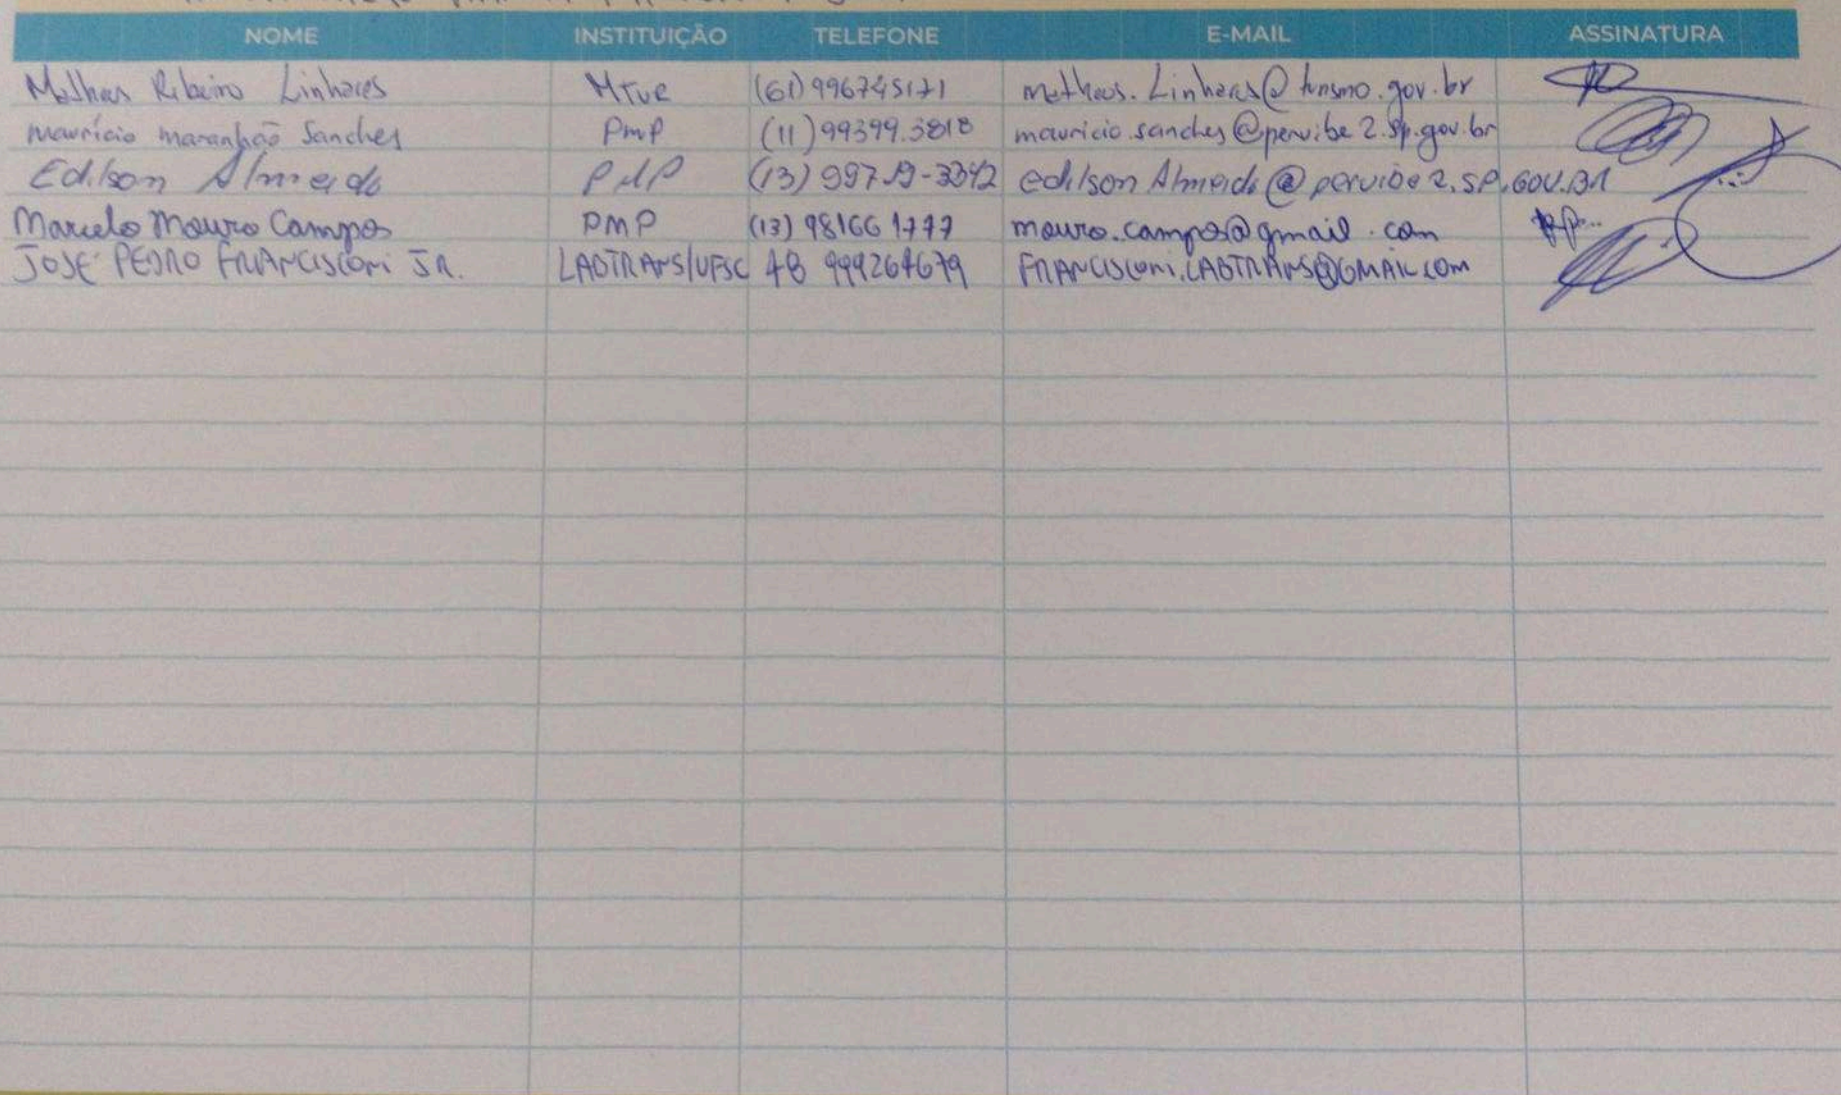 NOME INSTITUIÇÃO TELEFONE E-MAIL ASSINATURA
Matheus Ribeiro Linhares MTUR (61) 996745171 matheus.Linhares@turismo.gov.br
maurício maranhão Sanches PmP (11) 99399.3818 mauricio.sanches@peruibe2.sp.gov.br
Edilson Almeida PMP (13) 99719-3342 edilson Almeida@peruibe2.SP.GOV.BR
Marcelo Mauro Campos PMP (13) 981661777 mauro.campos@gmail.com
JOSÉ PEDRO FRANCISCONI JR. LABTRANS/UFSC 48 999264679 FRANCISCONI.LABTRANS@GMAIL.COM